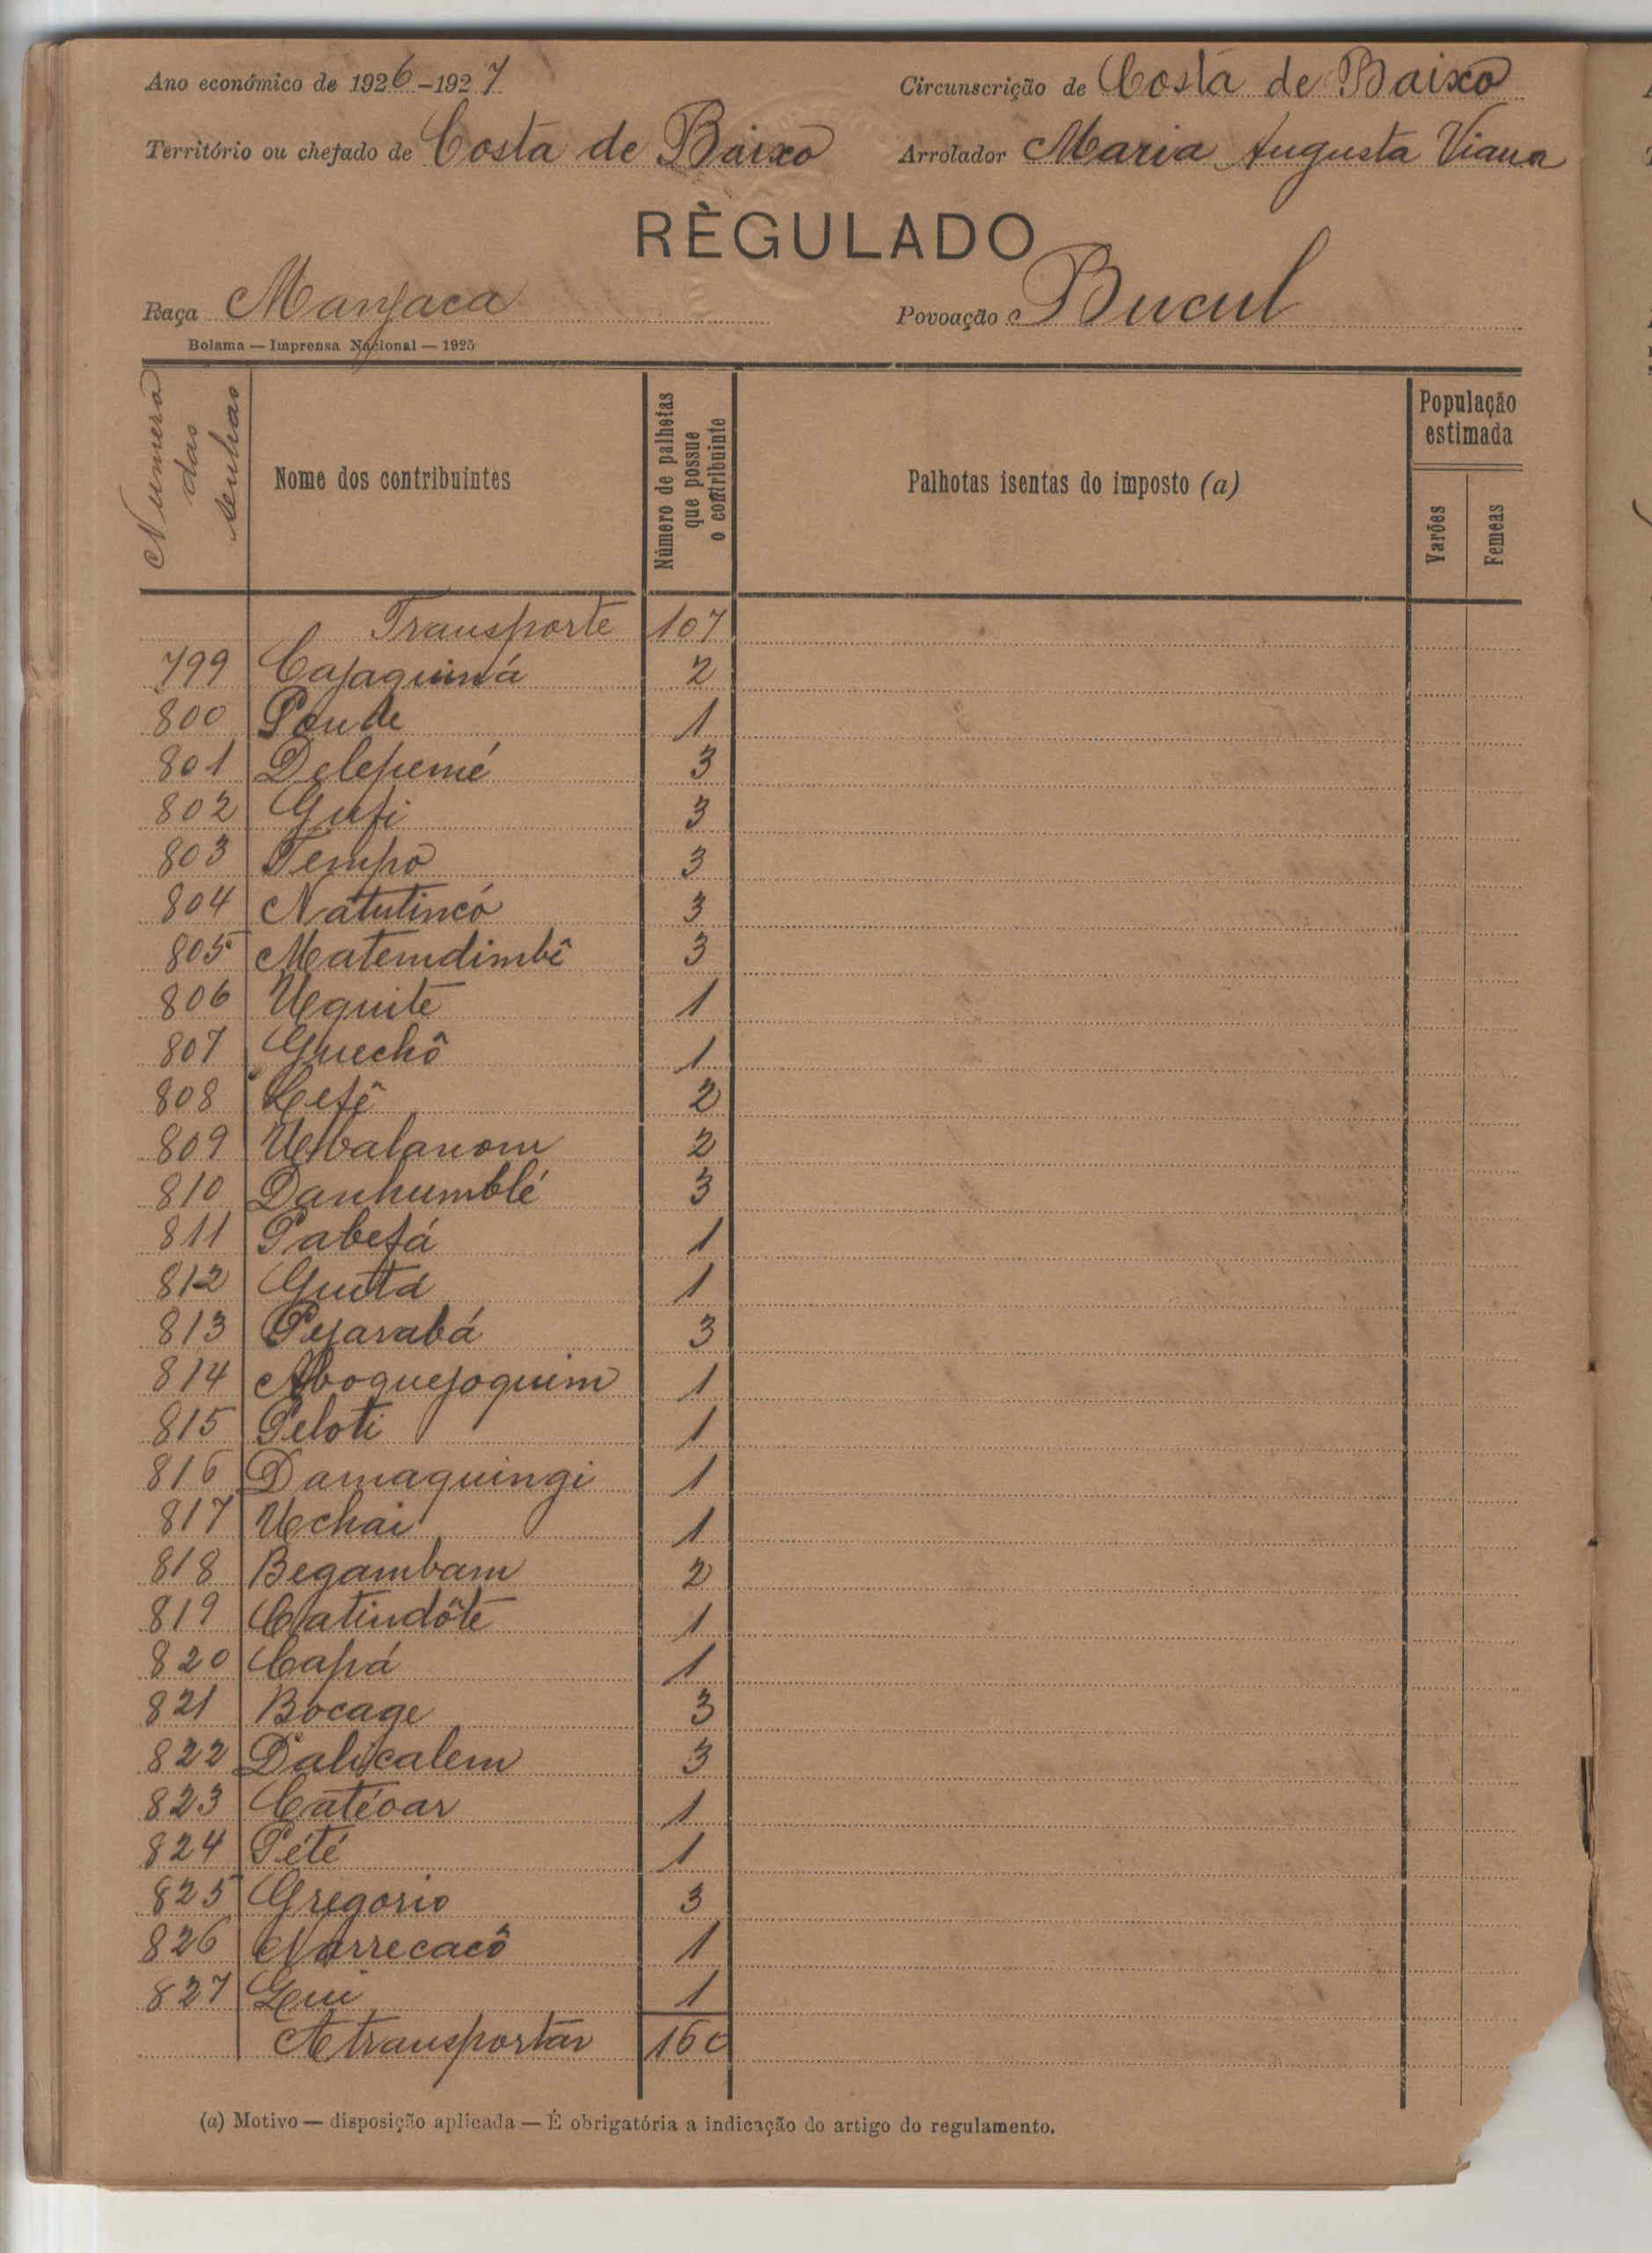 Ano económico de 1926-1927
Circunscrição de Costa de Baixo
Território ou chefado de Costa de Baixo
Arrolador Maria Augusta Viana
RÈGULADO
Raça Manjaca
Povoação Bucul
Bolama — Imprensa Nacional — 1925
Numero das senhas
Nome dos contribuintes
Número de palhetas que possue o contribuinte
Palhotas isentas do imposto (a)
População estimada
Varões
Femeas
Transporte 107
799 Cajaquimá 2
800 Ponde 1
801 Delepemé 3
802 Gufi 3
803 Tempo 3
804 Natutincó 3
805 Matemdimbê 3
806 Uquite 1
807 Guechô 1
808 2
809 Ubalanom 2
810 Danhumblé 3
811 Pabefá 1
812 Guitá 1
813 Pejarabá 3
814 Aboquejoquim 1
815 Peloti 1
816 Damaquingi 1
817 Uchai 1
818 Begambam 2
819 Catindôte 1
820 Capá 1
821 Bocage 3
822 Dalicalem 3
823 Catéoar 1
824 Pété 1
825 Gregorio 3
826 Narrecacô 1
827 Lui 1
A transportar 160
(a) Motivo — disposição aplicada — É obrigatória a indicação do artigo do regulamento.